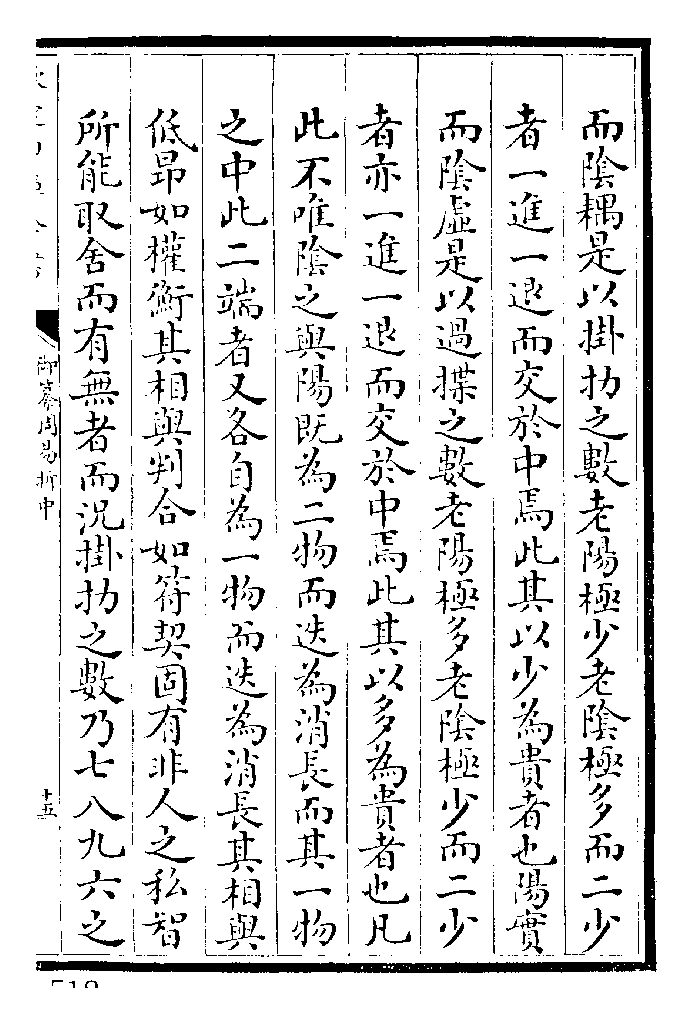 而陰耦是以掛扐之數老陽極少老陰極多而二少
者一進一退而交於中焉此其以少為貴者也陽實
而陰虛是以過揲之數老陽極多老陰極少而二少
者亦一進一退而交於中焉此其以多為貴者也凡
此不唯陰之與陽既為二物而迭為消長而其一物
之中此二端者又各自為一物而迭為消長其相與
低昂如權衡其相與判合如符契固有非人之私智
所能取舍而有無者而況掛扐之數乃七八九六之
御纂周易折中
十五